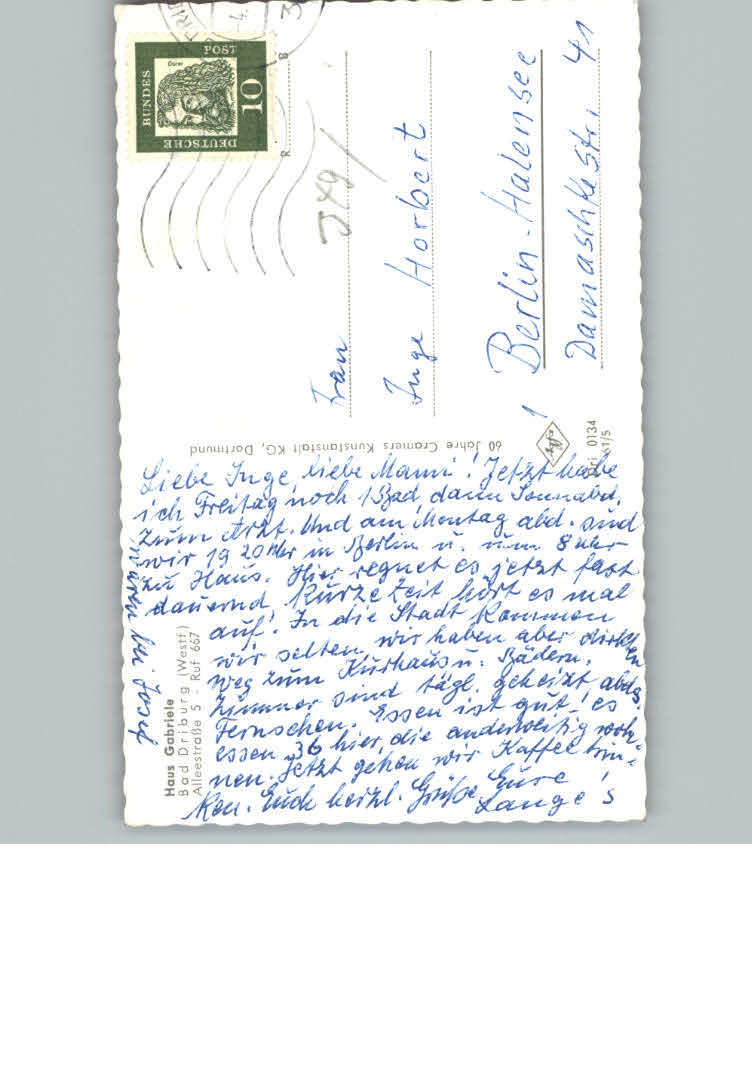 Liebe Inge, liebe Manni! Jetzt habe
ich Freitag noch 1 Bad dann Sonnabd.
zum Arzt. Und am Montag abd. sind
wir 19 20 Uhr in Berlin u. um 8 Uhr
zu Haus. Hier regnet es jetzt fast
dauernd, kurze Zeit hört es mal
auf! In die Stadt kommen
wir selten, wir haben aber direkten
Weg zum Kurhaus u. Bädern.
Zimmer sind tägl. geheizt, abds.
Fernsehen. Essen ist gut, es
essen 36 hier, die anderweitig woh-
nen. Jetzt gehen wir Kaffee trin-
ken. Euch herzl. Grüße Eure
Lange's
Haus Gabriele
Bad Driburg (Westf.)
Alleestraße 5 - Ruf 667
60 Jahre Cramers Kunstanstalt KG, Dortmund
Dri 0134
61/5
DEUTSCHE
BUNDES
POST
10
Dürer
R
B
Frau
Inge Horbert
1 Berlin-Halensee
Damaschkestr. 41